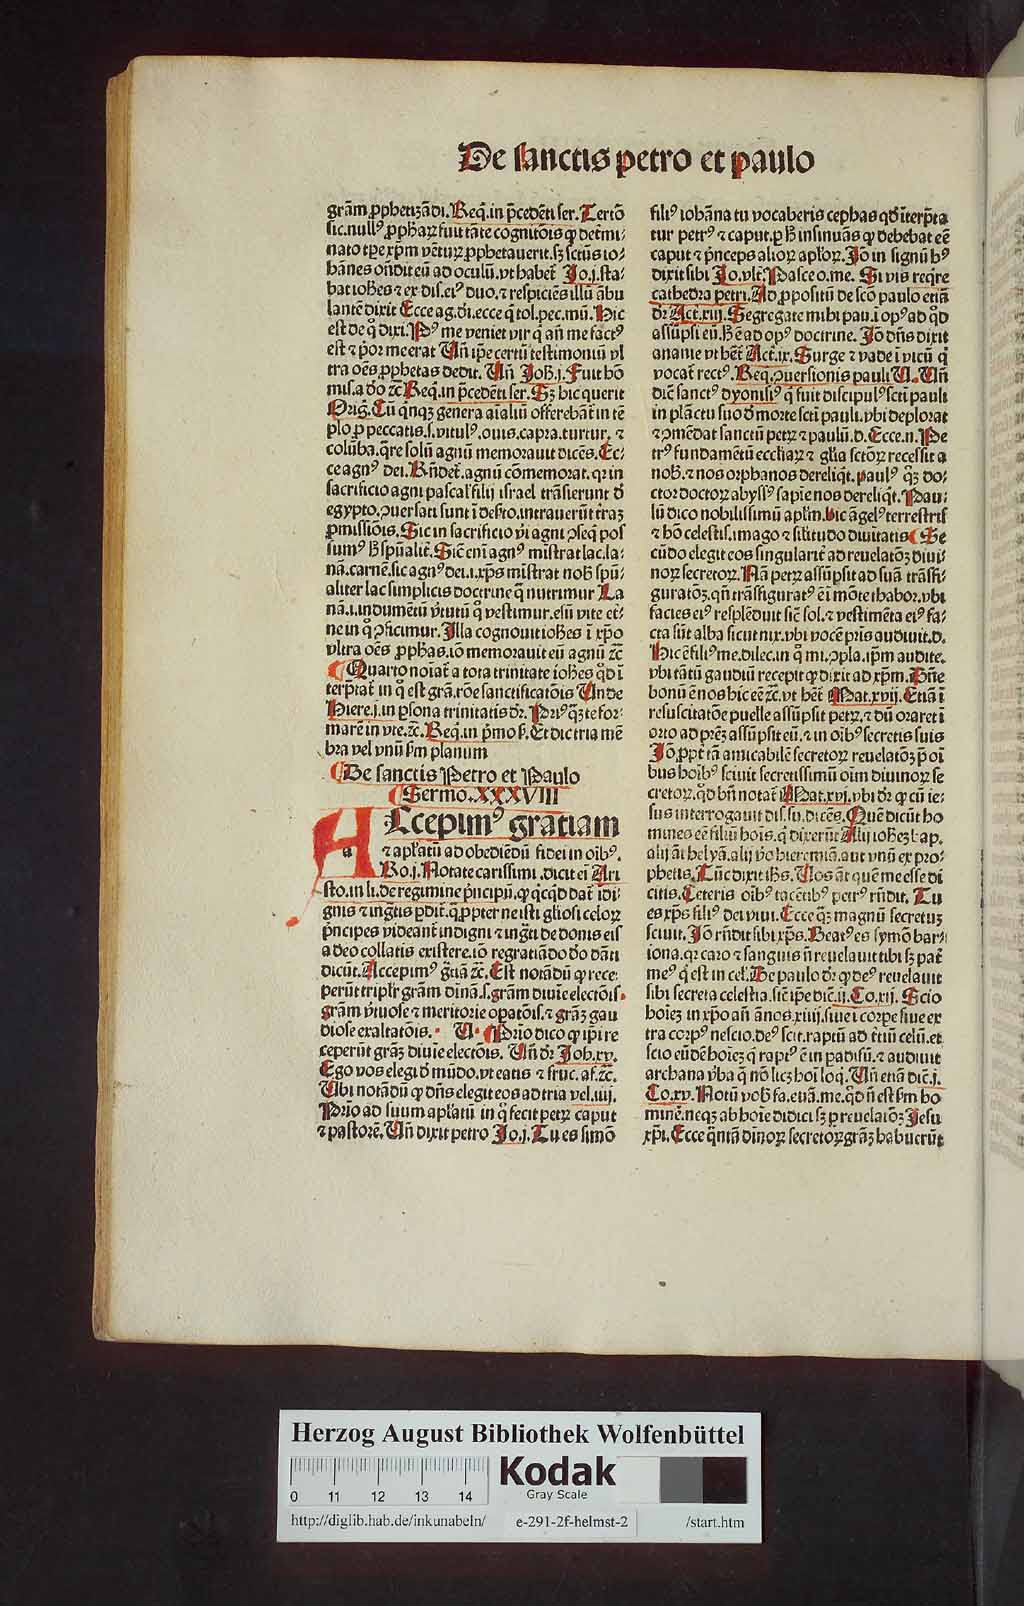 De sanctis petro et paulo
grām ꝓphetizādi. Req̄. in p̄cedēti ser. Tertō
sic. nullꝰ ꝓph̄aꝝ fuit tāte cognitōis ꝙ det̄mi⸗
nato tꝑe xp̄m vētuꝝ ꝓphetauerit. sꝫ sctūs io⸗
hānes on̄dit eū ad oculū. vt habet᷑ Jo. j. sta⸗
bat ioh̄es ⁊ ex dis. eiꝰ duo. ⁊ respiciēs illū ābu
lantē dixit Ecce ag. di. ecce q̇ tol. pec. mū. Hic
est de q̊ dixi. Pꝰ me veniet vir q̇ an̄ me factꝰ
est ⁊ p̄or me erat Vn̄ ip̄e certū testimoniū vl
tra oēs ꝓphetas dedit. Vn̄ Joh̄. j. Fuit hō
mis. a do ⁊c̄ Req̄. in p̄cedēti ser. Sꝫ hic querit
Oriḡ. Cū q̇nqꝫ genera aīaliū offerebāt᷑ in tē
plo ꝓ peccatis. s. vitulꝰ. ouis. capra. turtur. ⁊
colūba. q̄re solū agnū memorauit dicēs. Ec⸗
ce agnꝰ dei. Rn̄det᷑. agnū cōmemorat. qꝛ in
sacrificio agni pascal' filij israel trāsierunt d̄
egypto. ꝯuersati sunt ī def̄to. intrauerūt t̄raꝫ
ꝓmissiōis. Sic in sacrificio v̄i agni ꝯseq̄ pos
sumꝰ h̄ sp̄ualit᷑. Sic̄ eni agnꝰ mīstrat lac. la⸗
nā. carnē. sic agnꝰ dei. i. xp̄s mīstrat nob̄ spū⸗
aliter lac simplicis doctrine q̄ nutrimur La
nā. i. indumētū v̇tutū q̊ vestimur. esū vite et⸗
ne in q̊ ꝯficimur. Illa cognouit ioh̄es ī xp̄o
vltra oēs ꝓph̄as. iō memorauit eū agnū ⁊c̄
Quarto noīat᷑ a tota trinitate ioh̄es qd̄ ī
terp̄tat᷑ in q̊ est grā. rōe sanctificatōis Vnde
Hiere. j. in ꝑsona trinitatis dr̄. Priꝰqꝫ te for⸗
marē in vte. ⁊c̄. Req̄. in p̄mo s̄. Et dic tria mē
bra vel vnū s̄m planum
De sanctis Petro et Paulo
Sermo. XXXVIII
ACcepimꝰ gratiam
⁊ apl̄atū ad obediēdū fidei in oīb̄ꝰ.
Ro. j. Notate carissimi. dicit ei Ari
sto. in li. de regimine p̄ncipū. ꝙ q̇cq̇d dat᷑ īdi⸗
gnis ⁊ ingr̄tis ꝑdit᷑. q̄ ꝓpter ne isti gl̄iosi celoꝝ
p̄ncipes videant᷑ indigni ⁊ ingr̄ti de donis eis
a deo collatis existere. iō regratiādo do dāti
dicūt. Accepimꝰ gr̄iā ⁊c̄. Est notādū ꝙ rece⸗
perūt tripl̄r grām dinā. s. grām diuīe electōis.
grām v̇tuose ⁊ meritorie oꝑatōis. ⁊ grāꝫ gau
diose exaltatōis. V. Prīo dico ꝙ ip̄i re
ceperūt grāꝫ diuīe electōis. Vn̄ dr̄ Joh̄. xv.
Ego vos elegi d̄ mūdo. vt eatis ⁊ fruc. af. ⁊c̄.
Vbi notādū ꝙ dn̄s elegit eos ad tria vel. iiij.
Prīo ad suum apl̄atū in q̊ fecit petꝝ caput
⁊ pastorē. Vn̄ dixit petro Jo. j. Tu es simō
filiꝰ iohāna tu vocaberis cephas qd̄ īterp̄ta
tur petrꝰ ⁊ caput. ꝑ h̄ insinuās ꝙ debebat eē
caput ⁊ p̄nceps alioꝝ apl̄oꝝ. Jō in signū hꝰ
dixit sibi Jo. vlt̄. Pasce o. me. Si vis req̇re
cathedra petri. Ad ꝓpositū de scō paulo etiā
dr̄ Act. xiij. Segregate mibi pau. i opꝰ ad qd̄
assūpsi eū. H̄ ē ad opꝰ doctrine. Jō dn̄s dixit
ananie vt het̄ Act. ix. Surge ⁊ vade ī vicū q̇
vocat᷑ rectꝰ. Req̄. ꝯuersionis pauli V. Vn̄
dic̄ sanctꝰ dyonisiꝰ q̇ fuit discipulꝰ scti pauli
in plāctu suo d̄ morte scti pauli. vbi deplorat
⁊ ꝯmēdat sanctū petꝝ ⁊ paulū. d. Ecce. n. Pe
trꝰ fundamētū eccl̄iaꝝ ⁊ gl̄ia sctōꝝ recessit a
nob̄. ⁊ nos orphanos dereliq̇t. paulꝰ q̊ꝫ do⸗
ctor doctoꝝ abyssꝰ sapīe nos dereliq̇t. Pau⸗
lū dico nobilissimū apl̄m. hic āgelꝰ terrestris
⁊ hō celestis. imago ⁊ sil̄itudo diuitatis Se
cūdo elegit eos singularit᷑ ad reuelatōꝫ diui⸗
noꝝ secretoꝝ. Nā petꝝ assūpsit ad suā trāsfi⸗
guratōꝫ. qn̄ trāsfiguratꝰ ē ī mōte thabor. vbi
facies eiꝰ resplēduit sic̄ sol. ⁊ vestimēta eiꝰ fa⸗
cta sūt alba sicut nix. vbi vocē pr̄is audiuit. d.
Hic ē filiꝰ me. dilec. in q̊ mi. ꝯpla. ip̄m audite.
vbi tātū gaudiū recepit ꝙ dixit ad xp̄m. Dn̄e
bonū ē nos hic eē ⁊c̄. vt het̄ Mat. xvij. Etiā ī
resuscitatōe puelle assūpsit petꝝ. ⁊ dū oraret ī
orto ad prēꝫ assūpsit eū. ⁊ in oīb̄ꝰ secretis suis
Jō ꝓpt̄ tā amicabilē secretoꝝ reuelatōꝫ p̄ oī
bus hoīb̄ꝰ sciuit secretissimū oīm diuinoꝝ se
cretoꝝ. qd̄ bn̄ notat᷑ Mat. xvj. vbi dr̄ ꝙ cū ie⸗
sus interrogauit dis. su. dicēs. Quē dicūt ho
mines eē filiū hoīs. q̇ dixerūt Alij ioh̄eꝫ bap.
alij āt helyā. alij v̊o hieremiā. aut vnū ex pro⸗
phetis. Tūc dixit ih̄s. Vos āt quē me esse di
citis. Ceteris oīb̄ꝰ tacētib̄ꝰ petrꝰ rn̄dit. Tu
es xp̄s filiꝰ dei viui. Ecce q̄ꝫ magnū secretuꝫ
sciuit. Jō rn̄dit sibi xp̄s. Beatꝰ es symō bar⸗
iona. qꝛ caro ⁊ sanguis n̄ reuelauit tibi sꝫ pat̄
meꝰ q̇ est in cel'. De paulo dr̄ ꝙ deꝰ reuelauit
sibi secreta celestia. sic̄ ip̄e dic̄. ij. Co. xij. Scio
hoīeꝫ in xp̄o an̄ ānos. xiiij. siue ī corꝑe siue ex
tra corpꝰ nescio. deꝰ scit. raptū ad t̄tiū celū. et
scio eūdē hoīeꝫ q̇ raptꝰ ē in padisū. ⁊ audiuit
archana v̄ba q̄ nō licꝫ hoī loq̇. Vn̄ etiā dic̄. j.
Co. xv. Notū vob̄ fa. euā. me. qd̄ n̄ est s̄m ho
minē. neqꝫ ab hoīe didici sꝫ ꝑ reuelatōꝫ Jesu
xp̄i. Ecce q̄ntā dīnoꝝ secretoꝝ grāꝫ habuerūt
Herzog August Bibliothek Wolfenbüttel
0 11 12 13 14
Kodak
Gray Scale
http://diglib.hab.de/inkunabeln/ e-291-2f-helmst-2 /start.htm